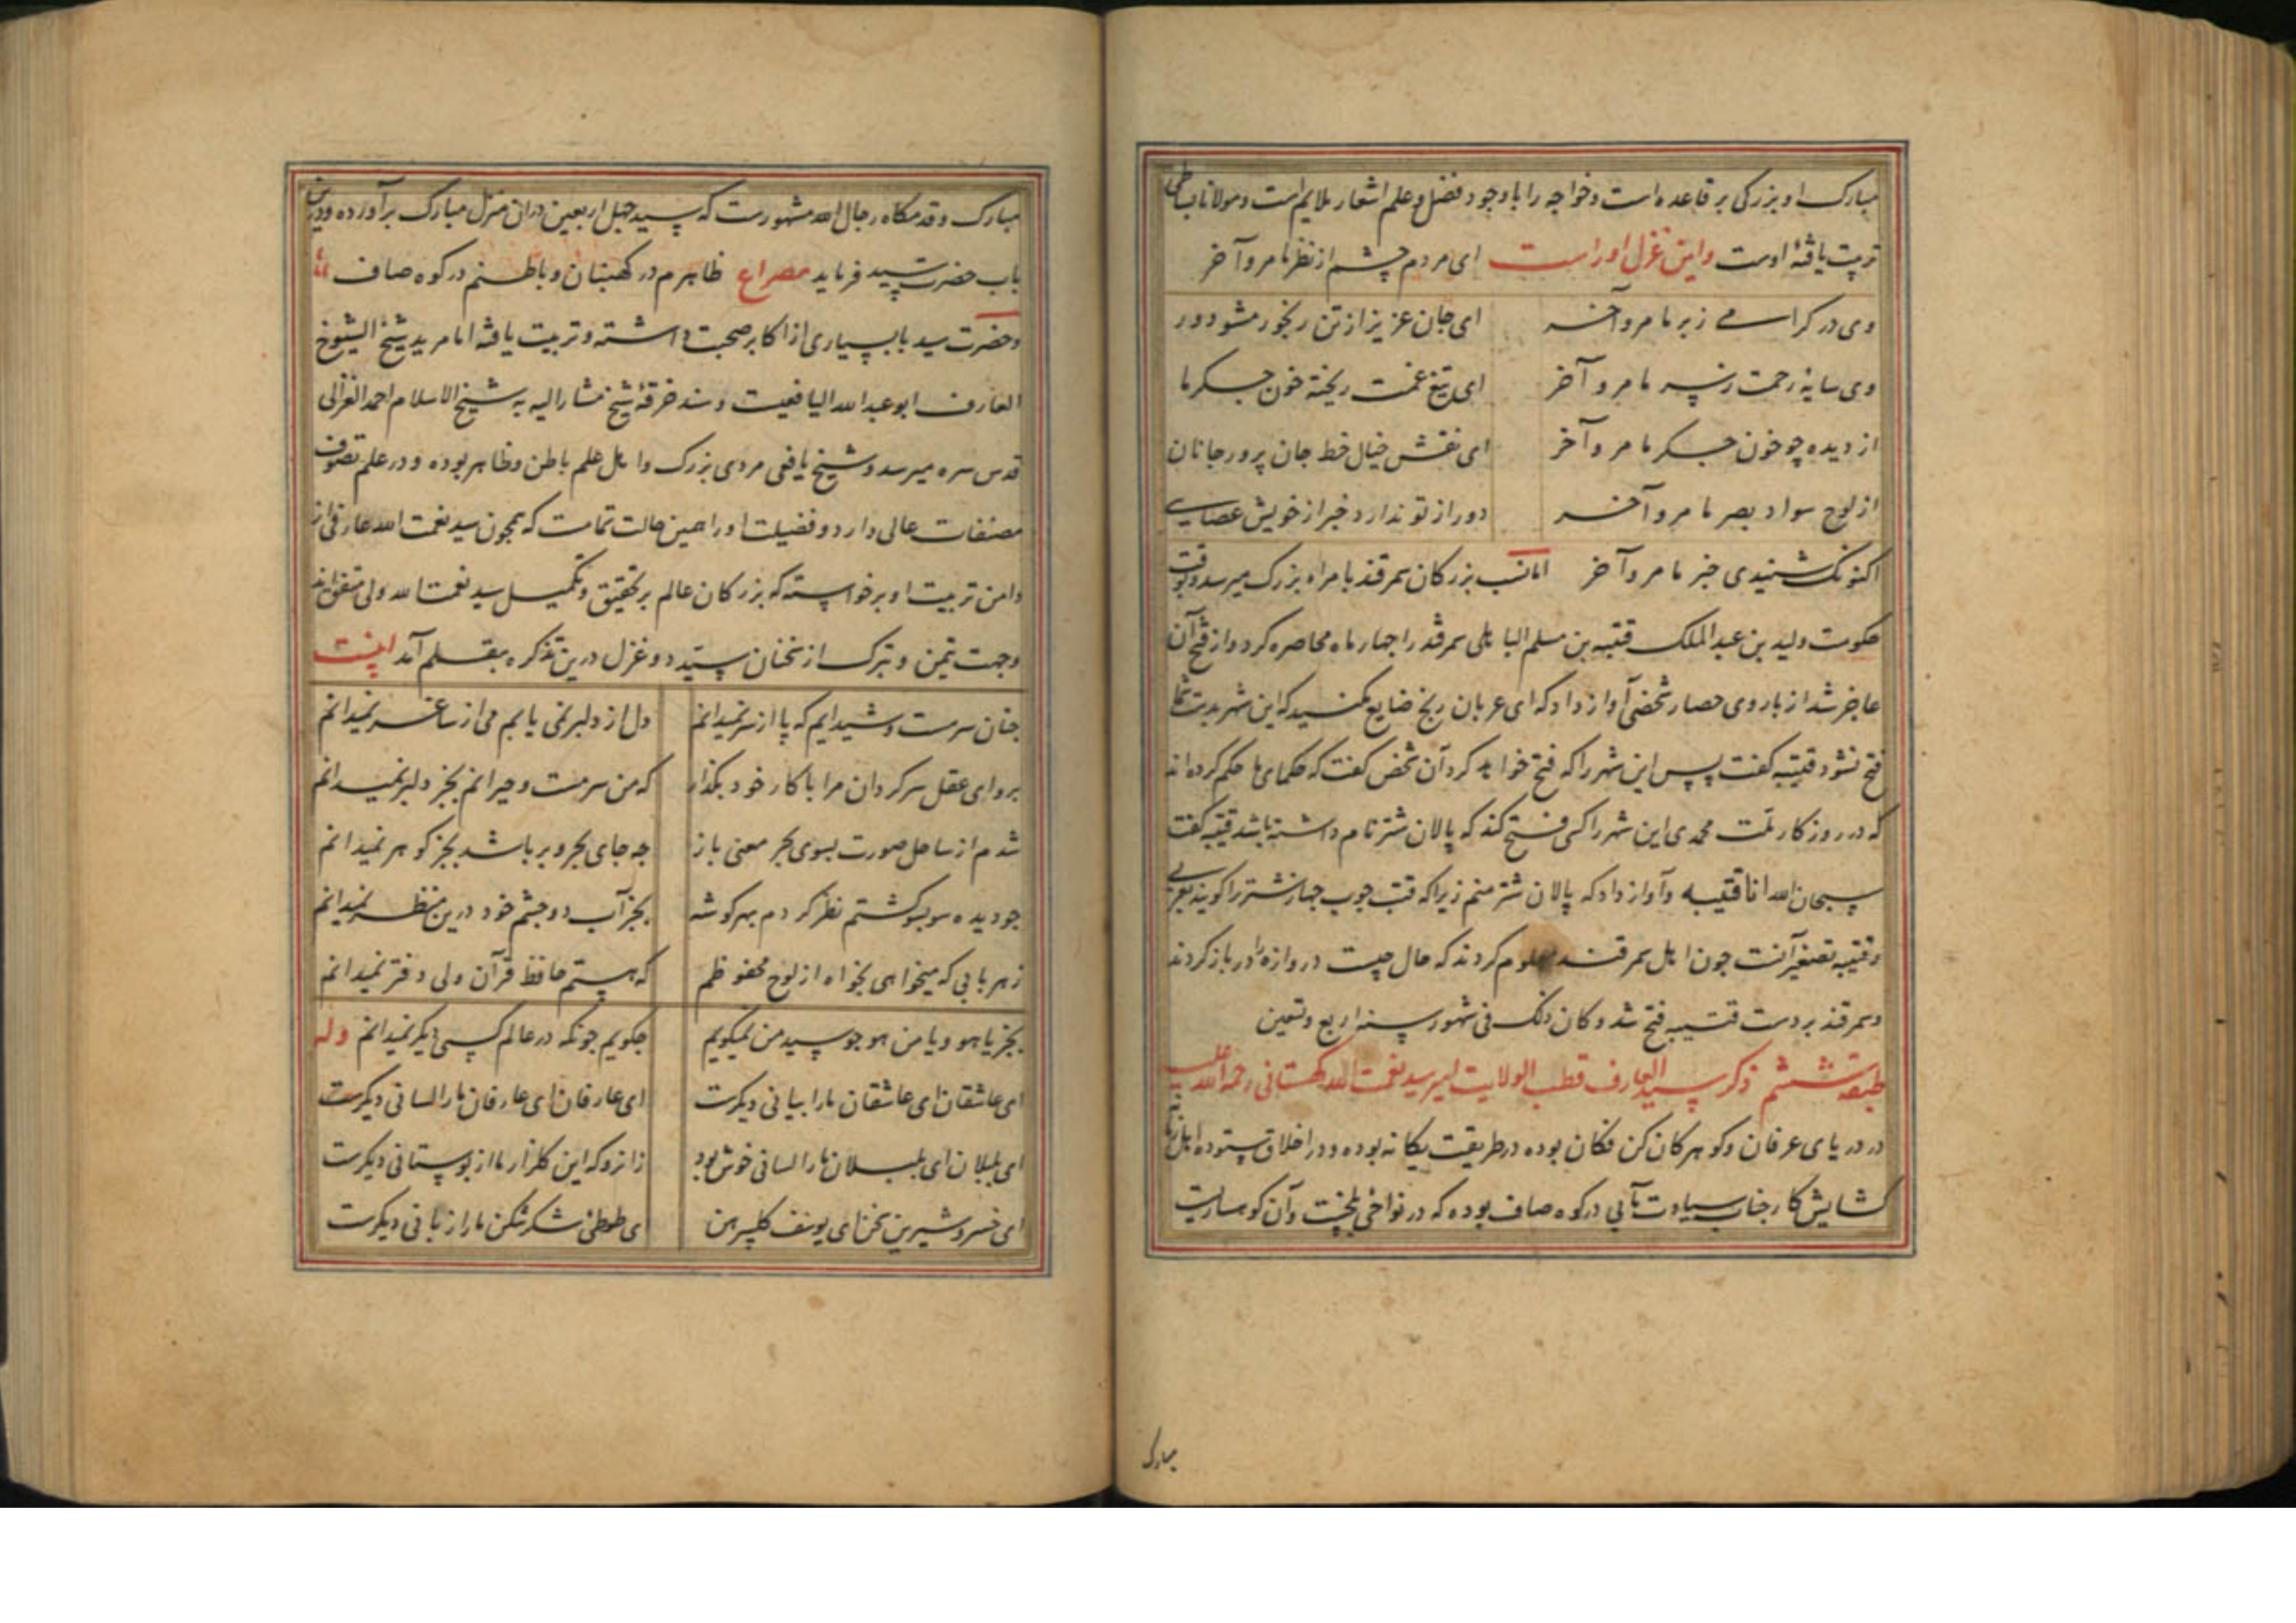 مبارک او بزرگی بر قاعده است و خواجه را با وجود فضل و علم اشعار ملایم است و مولانا بساطی
تربیت یافتهٔ اوست واین غزل اوراست ای مردم چشم از نظر ما مرو آخر
ای جان عزیز از تن رنجور مشو دور وی در کرامی ز بر ما مرو آخر
ای تیغ غمت ریخته خون جکر ما وی سایهٔ رحمت ز سر ما مرو آخر
ای نقش خیال خط جان پرور جانان از دیده چو خون جکر ما مرو آخر
دور از تو ندارد خبر از خویش عصایی از لوح سواد بصر ما مرو آخر
اکنونک شنیدی خبر ما مرو آخر اما نسب بزرکان سمرقند بامراء بزرک میرسد و بوقت
حکومت ولید بن عبدالملک قتیبه بن مسلم الباهلی سمرقند را جهار ماه محاصره کرد و از فتح آن
عاجز شد از باروی حصار شخصی آواز داد که ای عربان رنج ضایع مکنید که این شهر بدست شما
فتح نشود قتیبه کفت پس این شهر را که فتح خواهد کرد آن شخص کفت که حکمای ما حکم کرده اند
که در روزکار ملت محمدی این شهر را کسی فتح کند که پالان شتر نام داشته باشد قتیبه کفت
سبحان الله انا قتیبه وآواز داد که پالان شتر منم زیرا که قتب جوب جهاز شتر را کویند بعربی
و قتیبه تصغیر آنست جون اهل سمرقند معلوم کردند که حال جیست دروازه را در باز کردند
وسمرقند بر دست قتیبه فتح شد و کان ذلک فی شهور سنه اربع وتسعین
طبقه ششم ذکر سید العارف قطب الولایت امیر سید نعمت الله کهستانی رحمة الله علیه
در دریای عرفان وکوهر کان کن فکان بوده در طریقت یکانه بوده ودر اخلاق ستوده اهل زمانه
کشایش کار جناب سیادت مآبی در کوه صاف بوده که در نواحی بلخست وآن کوهساریست
مبارک
مبارک و قدمکاه رجال الله مشهورست که سید جهل اربعین دران منزل مبارک برآورده ودرین
باب حضرت سید فرماید مصراع ظاهرم در کهستان و باطنم در کوه صاف
وحضرت سید با بسیاری از اکابر صحبت داشته و تربیت یافته اما مرید شیخ الشیوخ
العارف ابو عبدالله الیافعیست و سند خرقهٔ شیخ مشار الیه به شیخ الاسلام احمد الغزالی
قدس سره میرسد و شیخ یافعی مردی بزرک واهل علم باطن وظاهر بوده ودر علم تصوف
مصنفات عالی دارد و فضیلت اورا همین حالت تمامست که همجون سید نعمت الله عارفی از
دامن تربیت او برخواسته که بزرکان عالم بر تحقیق وتکمیل سید نعمت الله ولی متفق اند
وجهت تیمن و تبرک از سخنان سید دو غزل درین تذکره بقلم آمد اینست
جنان سرمست وشیدایم که پا از سر نمیدانم دل از دلبر نمی یابم می از ساغر نمیدانم
برو ای عقل سرکردان مرا با کار خود بکذار که من سرمست وحیرانم بجز دلبر نمیدانم
شدم از ساحل صورت بسوی بحر معنی باز جه جای بحر وبر باشد بجز کوهر نمیدانم
جو دیده سو بسو کشتم نظر کردم بهر کوشه بجز آب دو جشم خود درین منظر نمیدانم
ز هر بابی که میخواهی بخواه از لوح محفوظم که هستم حافظ قرآن ولی دفتر نمیدانم
بجز یاهو ویا من هو جو سید من نمیکویم جکویم جونکه در عالم کسی دیکر نمیدانم وله
ای عاشقان ای عاشقان ما را بیانی دیکرست ای عارفان ای عارفان ما را لسانی دیکرست
ای بلبلان ای بلبلان ما را لسانی خوش بود زانرو که این کلزار ما از بوستانی دیکرست
ای خسرو شیرین سخن ای یوسف کل پیرهن ای طوطی شکر شکن ما را زبانی دیکرست